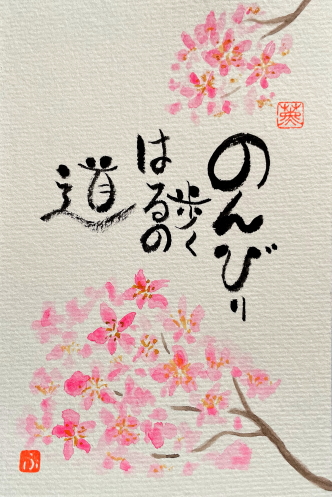 のんびり
歩く
はるの
道
ふ